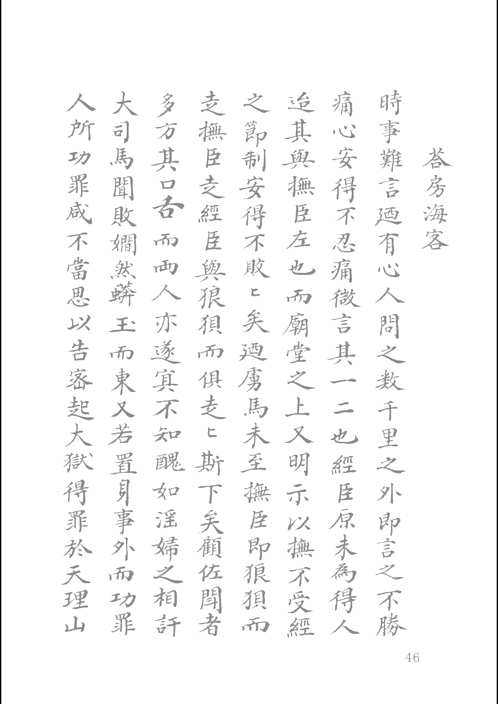 荅房海客
時事難言廼有心人問之数千里之外即言之不勝
痛心安得不忍痛微言其一二也經臣原未為得人
迨其與撫臣左也而廟堂之上又明示以撫不受經
之節制安得不敗〻矣廼虜馬未至撫臣即狼狽而
走撫臣走經臣與狼狽而俱走〻斯下矣顧佐鬥者
多方其口舌而両人亦遂寘不知醜如淫婦之相訐
大司馬聞敗嫺然蟒玉而東又若置身事外而功罪
人所功罪咸不當思以告密起大獄得罪於天理山
46